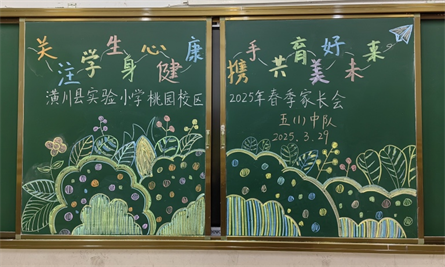 关注学生身心健康
潢川县实验小学桃园校区
携手共育美好未来
2025年春季家长会
五(1)中队
2025.3.29